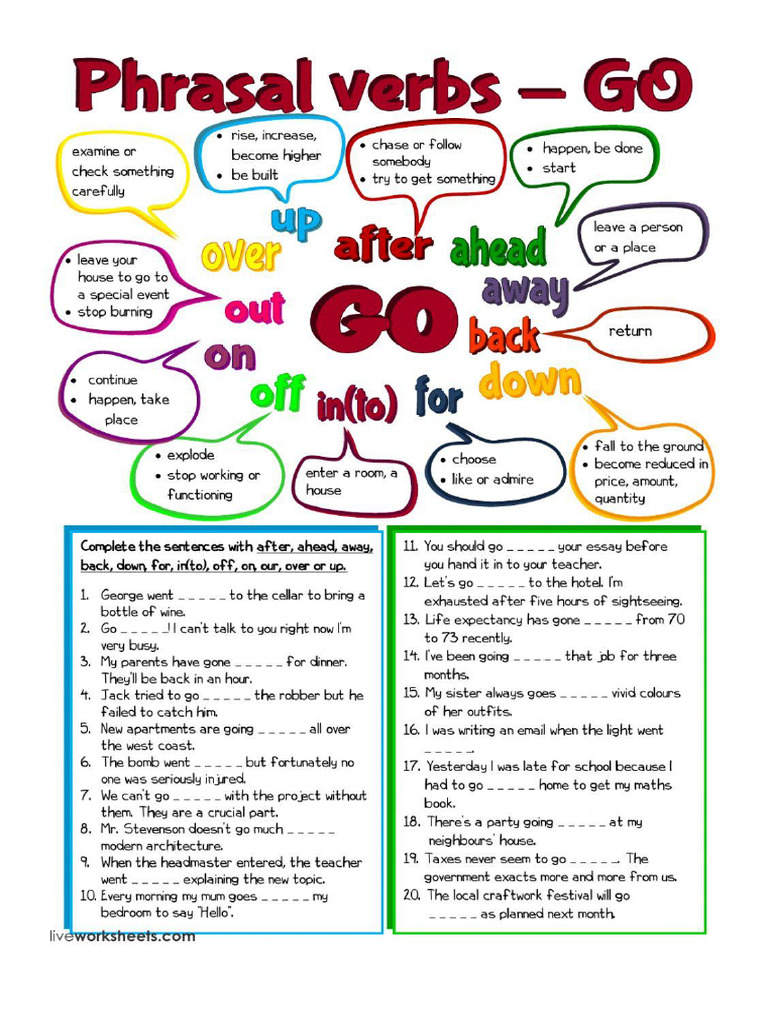 Phrasal verbs – GO
examine or
check something
carefully
• rise, increase,
become higher
• be built
• chase or follow
somebody
• try to get something
• happen, be done
• start
leave a person
or a place
• leave your
house to go to
a special event
• stop burning
over
up
after
ahead
away
out
GO
back
return
on
off
in(to)
for
down
• continue
• happen, take
place
• explode
• stop working or
functioning
enter a room, a
house
• choose
• like or admire
• fall to the ground
• become reduced in
price, amount,
quantity
Complete the sentences with after, ahead, away,
back, down, for, in(to), off, on, our, over or up.
1. George went _ _ _ _ _ to the cellar to bring a
bottle of wine.
2. Go _ _ _ _ _! I can't talk to you right now I'm
very busy.
3. My parents have gone _ _ _ _ _ for dinner.
They'll be back in an hour.
4. Jack tried to go _ _ _ _ _ the robber but he
failed to catch him.
5. New apartments are going _ _ _ _ _ all over
the west coast.
6. The bomb went _ _ _ _ _ but fortunately no
one was seriously injured.
7. We can't go _ _ _ _ _ with the project without
them. They are a crucial part.
8. Mr. Stevenson doesn't go much _ _ _ _ _
modern architecture.
9. When the headmaster entered, the teacher
went _ _ _ _ _ explaining the new topic.
10. Every morning my mum goes _ _ _ _ _ my
bedroom to say "Hello".
11. You should go _ _ _ _ _ your essay before
you hand it in to your teacher.
12. Let's go _ _ _ _ _ to the hotel. I'm
exhausted after five hours of sightseeing.
13. Life expectancy has gone _ _ _ _ _ from 70
to 73 recently.
14. I've been going _ _ _ _ _ that job for three
months.
15. My sister always goes _ _ _ _ _ vivid colours
of her outfits.
16. I was writing an email when the light went
_ _ _ _ _.
17. Yesterday I was late for school because I
had to go _ _ _ _ _ home to get my maths
book.
18. There's a party going _ _ _ _ _ at my
neighbours' house.
19. Taxes never seem to go _ _ _ _ _. The
government exacts more and more from us.
20. The local craftwork festival will go
_ _ _ _ _ as planned next month.
liveworksheets.com